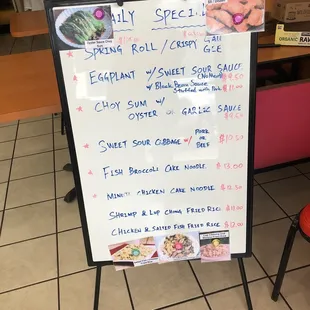 DAILY SPECIAL
SPRING ROLL / CRISPY GAU GEE
EGGPLANT w/ SWEET SOUR SAUCE
(No Meat) $9.50
w/ Black Bean Sauce
Stuffed with Pork $11.00
CHOY SUM w/
OYSTER or GARLIC SAUCE
SWEET SOUR CABBAGE w/ PORK or BEEF $10.50
FISH BROCCOLI CAKE NOODLE $13.00
CHICKEN CAKE NOODLE $12.50
SHRIMP & LUP CHONG FRIED RICE
CHICKEN & SALTED FISH FRIED RICE $12.00
ORGANIC